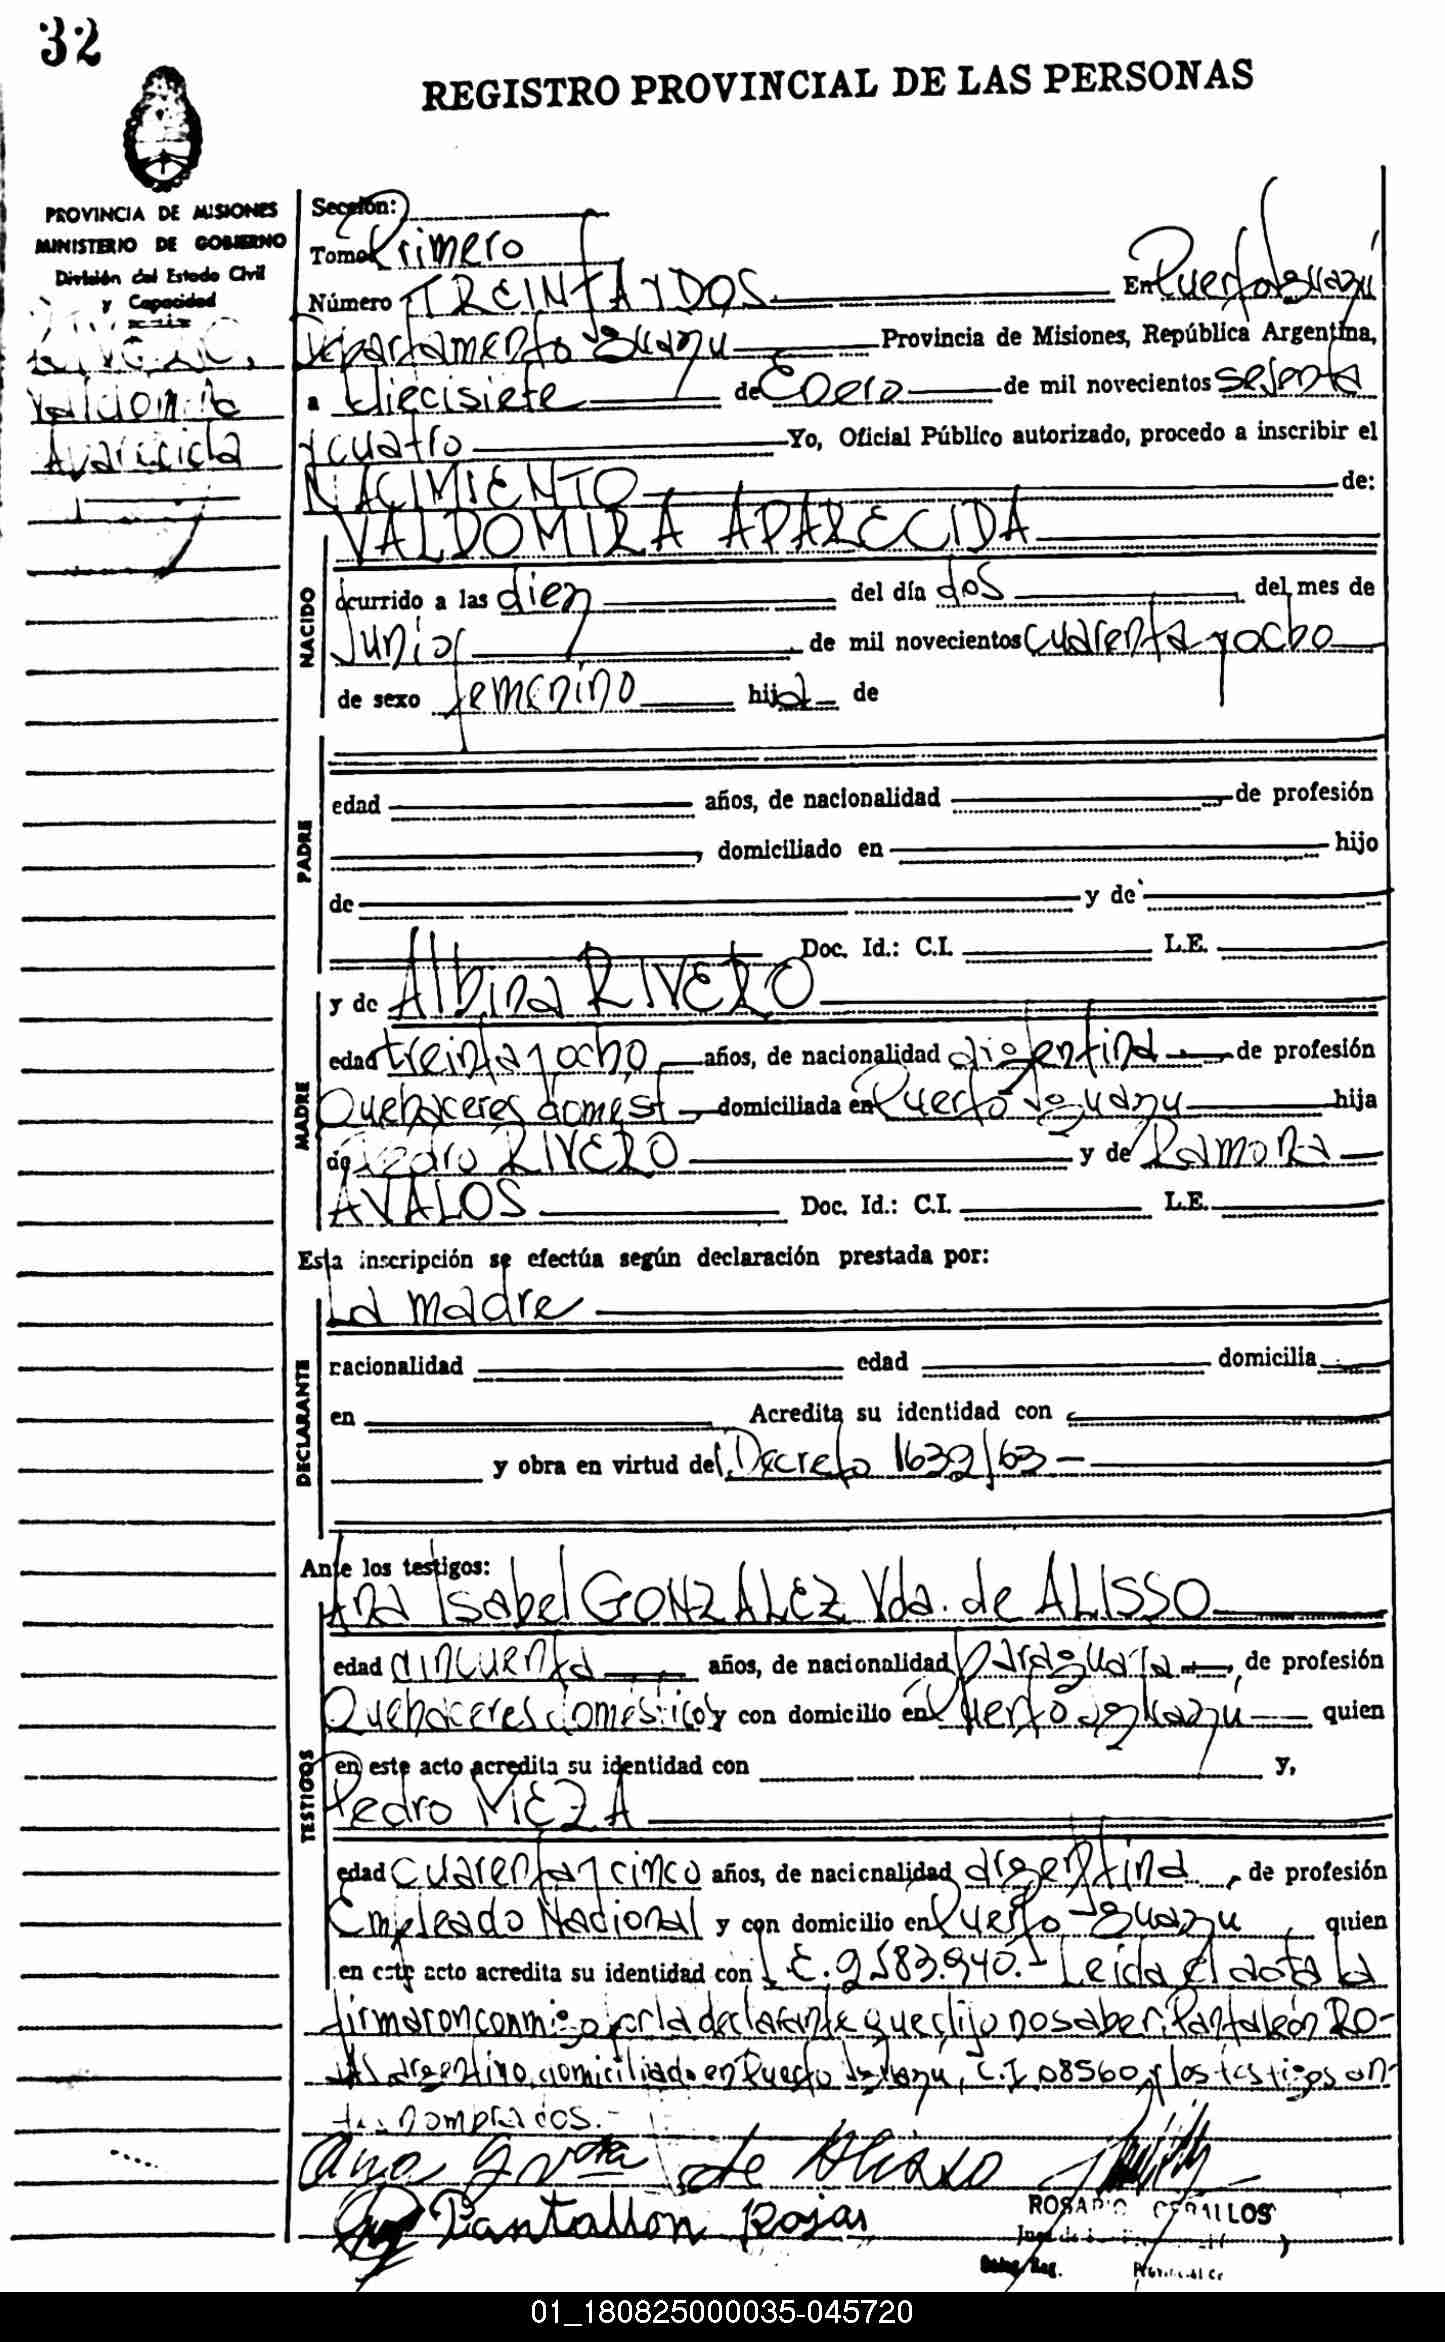 32
REGISTRO PROVINCIAL DE LAS PERSONAS
PROVINCIA DE MISIONES
MINISTERIO DE GOBIERNO
División del Estado Civil
y Capacidad
Valdomira
Aparecida
Sección:
Tomo Primero
Número TREINTA Y DOS En Puerto Iguazú
Departamento Iguazu Provincia de Misiones, República Argentina,
a diecisiete de Enero de mil novecientos sesenta
y cuatro Yo, Oficial Público autorizado, procedo a inscribir el
NACIMIENTO de:
VALDOMIRA APARECIDA
NACIDO
ocurrido a las diez del día dos del mes de
Junio de mil novecientos cuarenta y ocho
de sexo femenino hija de
PADRE
edad años, de nacionalidad de profesión
, domiciliado en hijo
de y de
Doc. Id.: C.I. L.E.
MADRE
y de Albina RIVERO
edad treinta y ocho años, de nacionalidad argentina de profesión
Quehaceres domést. domiciliada en Puerto Iguazu hija
de Pedro RIVERO y de Ramona
AVALOS Doc. Id.: C.I. L.E.
Esta inscripción se efectúa según declaración prestada por:
DECLARANTE
La madre
nacionalidad edad domicilia
en Acredita su identidad con
y obra en virtud del Decreto 1632/63-
Ante los testigos:
TESTIGOS
Ana Isabel GONZALEZ Vda. de ALISSO
edad cincuenta años, de nacionalidad paraguaya, de profesión
Quehaceres domésticos y con domicilio en Puerto Iguazú quien
en este acto acredita su identidad con y,
Pedro MEZA
edad cuarenta y cinco años, de nacionalidad argentina, de profesión
Empleado Nacional y con domicilio en Puerto Iguazu quien
en este acto acredita su identidad con L.E. 2583.940.- Leída el acta la
firmaron conmigo por la declarante que dijo no saber: Pantaleón RO-
JAS argentino, domiciliado en Puerto Iguazú, C.I. 08560 y los testigos an-
tes nombrados.-
Ana G vda de Alisso
Pantallon Rojas
ROSARIO CEBALLOS
01_180825000035-045720